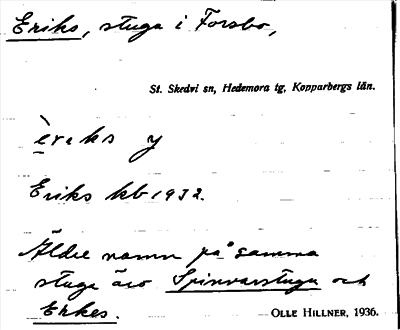 Eriks, stuga i Forsbo,
St. Skedvi sn, Hedemora tg, Kopparbergs län.
èriks y
Eriks kb 1932.
Äldre namn på samma
stuga äro Spinnarstugu och
Erkes.
OLLE HILLNER, 1936.